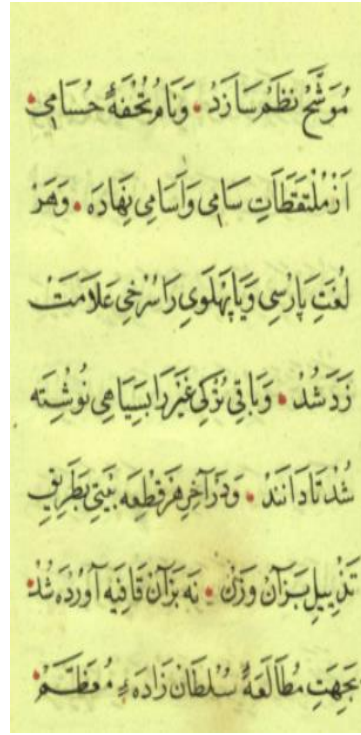 مُوَشَّحِ نَظْم سَازَدْ • وَنَامِ تُحْفَهٔ حُسَامِی •
اَزْمُلْتَقَطَاتِ سَامِی وَاَسَامِی نِهَادَه • وَهَرْ
لُغَتِ پَارْسِی وَیَا پَهْلَوِی رَا سُرْخِی عَلَامَتْ
زَدَ شُدْ • وَبَاقِی نُزْکِی غَیْرْ رَا بَسِیَاهِی نُوِشْتَه
شُدْ تَا دَانَنْدْ • وَدَرْ آخِرِ هَرْ قِطْعَه بَیْتِی بَطَرِیقِ
تَذْیِیلِ بَرْ آنْ وَزْنْ • نَه بَرْ آنْ قَافِیَه آوُرْدَه شُدْ •
بَجِهَتِ مُطَالَعَهٔ سُلْطَانْ زَادَهٔ مُعَظَّمْ •